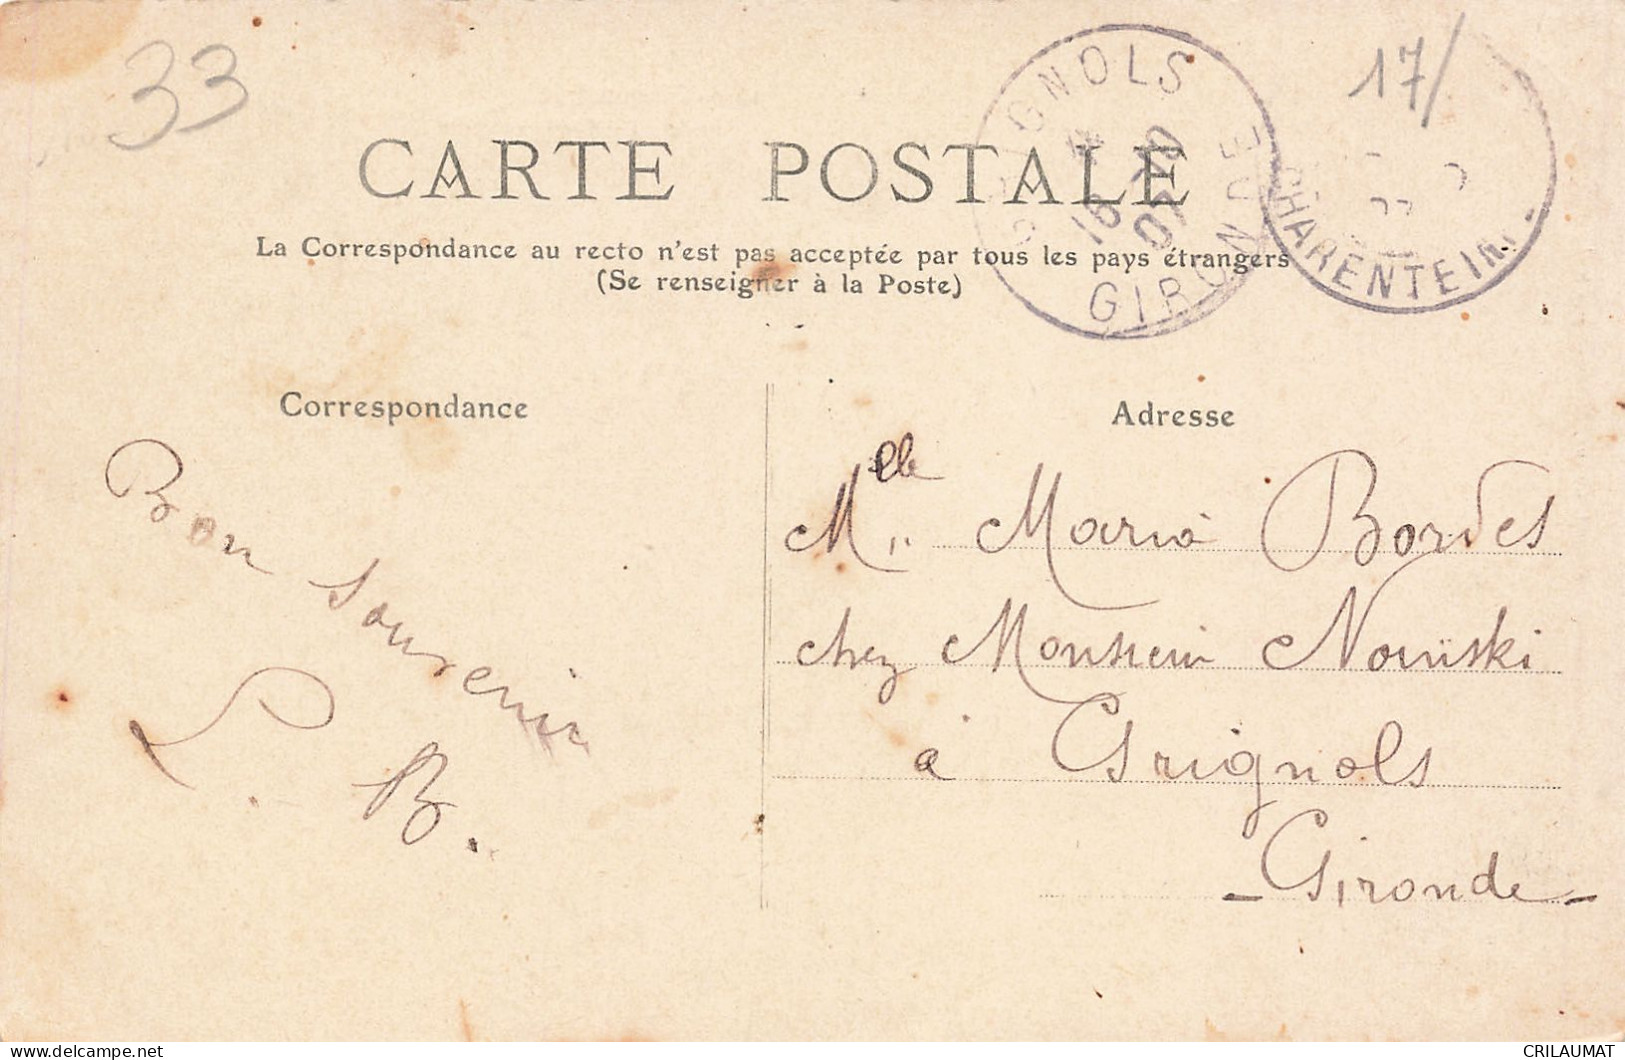 33
17/
GRIGNOLS
16
07
GIRONDE
CHARENTE INF.
CARTE POSTALE
La Correspondance au recto n'est pas acceptée par tous les pays étrangers
(Se renseigner à la Poste)
Correspondance
Bon souvenir
L. B.
Adresse
Melle Maria Bordes
chez Monsieur
à Grignols
- Gironde -
CRILAUMAT